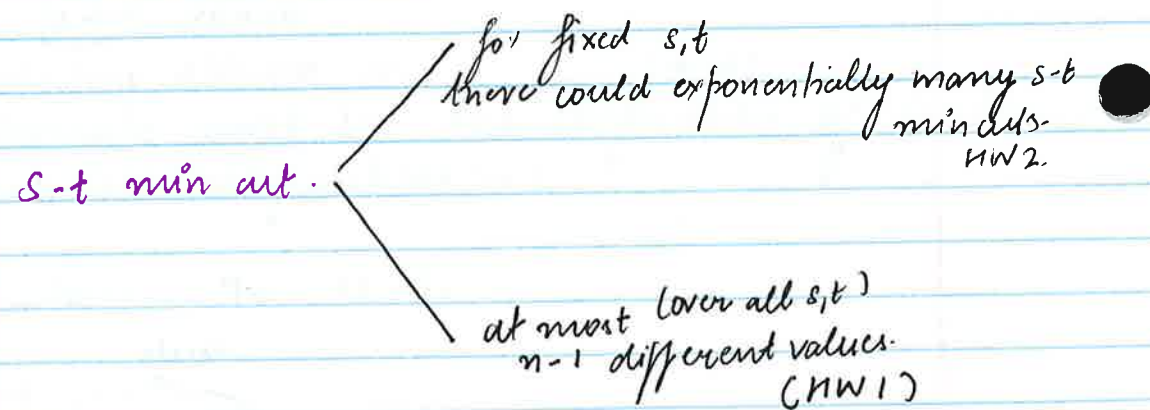 for fixed s,t
there could exponentially many s-t
min cuts.
HW2.
s-t min cut.
at most (over all s,t)
n-1 different values.
(HW1)